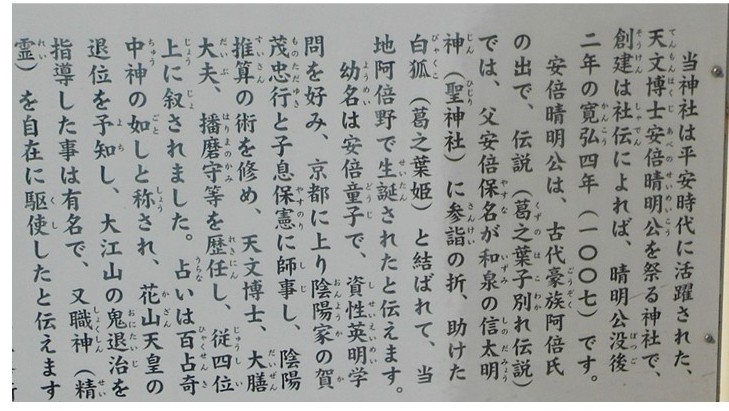 当神社は平安時代に活躍された、
天文博士安倍晴明公を祭る神社で、
創建は社伝によれば、晴明公没後
二年の寛弘四年（一〇〇七）です。
安倍晴明公は、古代豪族阿倍氏
の出で、伝説（葛之葉子別れ伝説）
では、父安倍保名が和泉の信太明
神（聖神社）に参詣の折、助けた
白狐（葛之葉姫）と結ばれて、当
地阿倍野で生誕されたと伝えます。
幼名は安倍童子で、資性英明学
問を好み、京都に上り陰陽家の賀
茂忠行と子息保憲に師事し、陰陽
推算の術を修め、天文博士、大膳
大夫、播磨守等を歴任し、従四位
上に叙されました。占いは百占奇
中神の如しと称され、花山天皇の
退位を予知し、大江山の鬼退治を
指導した事は有名で、又職神（精
霊）を自在に駆使したと伝えます